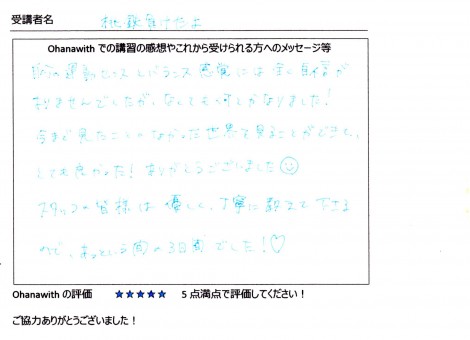 受講者名
Ohanawith での講習の感想やこれから受けられる方へのメッセージ等
運動センスというセンス感覚には全く自信が
ありませんでしたが、なんとも楽しかなりました！
今まで見たことのなかった世界を見ることができて、
とても良かった！ありがとうございました
スタッフの皆様は優しく、丁寧に教えて下さる
ので、あっという間の3日間でした！♡
Ohanawith の評価 ★★★★★ 5 点満点で評価してください！
ご協力ありがとうございました！